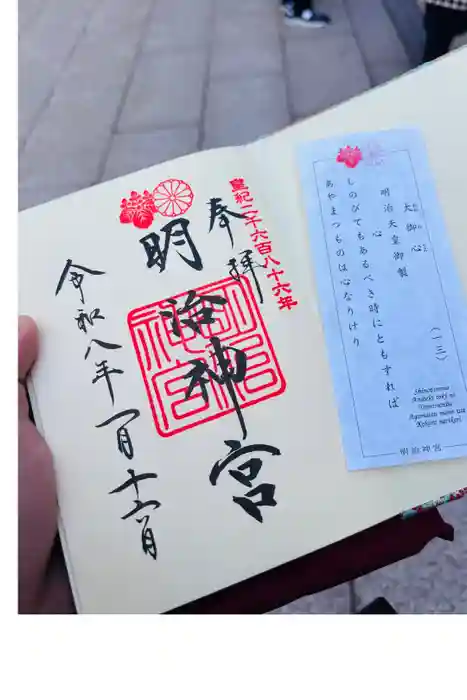 皇紀二千六百八十六年
奉拝
明治神宮
明治神宮
令和八年一月十六日
大御心
おおみごころ
明治天皇御製
(一三)
心
しのびてもあるべき時にともすれば
あやまつものは心なりけり
Shinobitemo
Arubeki toki ni
Tomosureba
Ayamatsu mono wa
Kokoro narikeri
明治神宮